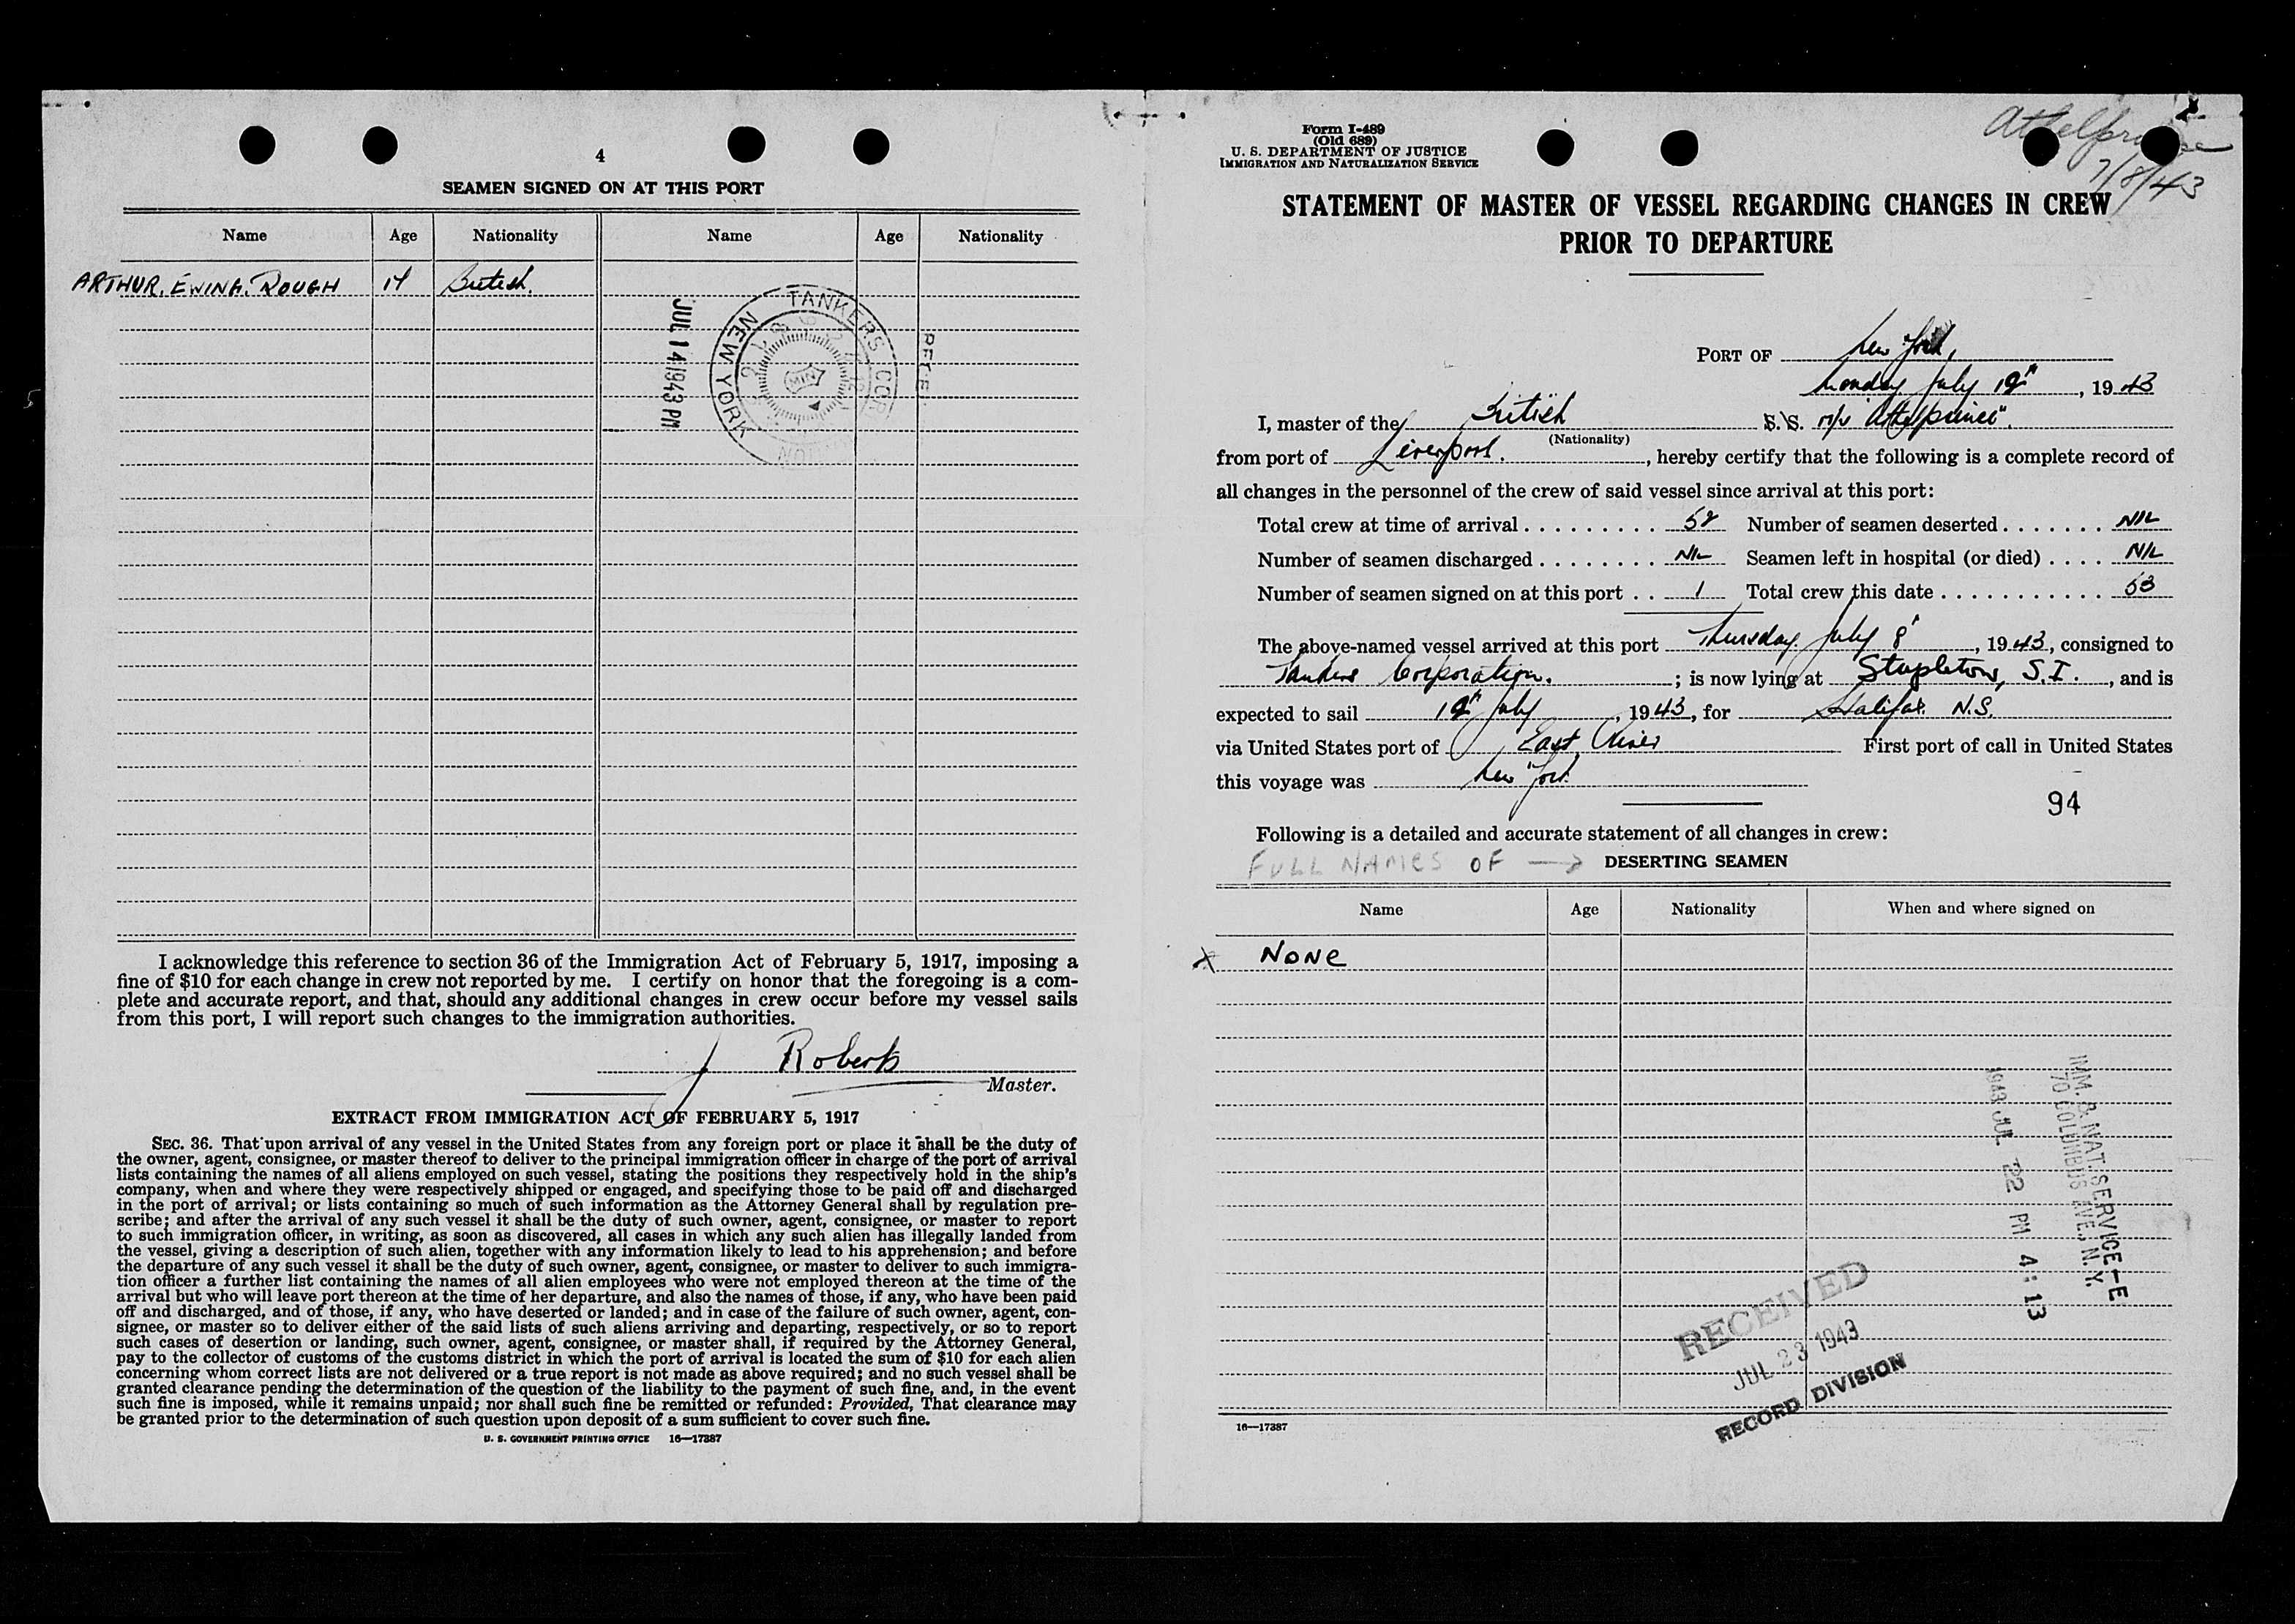 4
SEAMEN SIGNED ON AT THIS PORT
Name Age Nationality Name Age Nationality
ARTHUR. EWING. ROUGH 17 British.
JUL 14 1943 PM
TANKERS COR
NEW YORK
I acknowledge this reference to section 36 of the Immigration Act of February 5, 1917, imposing a
fine of $10 for each change in crew not reported by me. I certify on honor that the foregoing is a com-
plete and accurate report, and that, should any additional changes in crew occur before my vessel sails
from this port, I will report such changes to the immigration authorities.
J Roberts
Master.
EXTRACT FROM IMMIGRATION ACT OF FEBRUARY 5, 1917
SEC. 36. That upon arrival of any vessel in the United States from any foreign port or place it shall be the duty of
the owner, agent, consignee, or master thereof to deliver to the principal immigration officer in charge of the port of arrival
lists containing the names of all aliens employed on such vessel, stating the positions they respectively hold in the ship's
company, when and where they were respectively shipped or engaged, and specifying those to be paid off and discharged
in the port of arrival; or lists containing so much of such information as the Attorney General shall by regulation pre-
scribe; and after the arrival of any such vessel it shall be the duty of such owner, agent, consignee, or master to report
to such immigration officer, in writing, as soon as discovered, all cases in which any such alien has illegally landed from
the vessel, giving a description of such alien, together with any information likely to lead to his apprehension; and before
the departure of any such vessel it shall be the duty of such owner, agent, consignee, or master to deliver to such immigra-
tion officer a further list containing the names of all alien employees who were not employed thereon at the time of the
arrival but who will leave port thereon at the time of her departure, and also the names of those, if any, who have been paid
off and discharged, and of those, if any, who have deserted or landed; and in case of the failure of such owner, agent, con-
signee, or master so to deliver either of the said lists of such aliens arriving and departing, respectively, or so to report
such cases of desertion or landing, such owner, agent, consignee, or master shall, if required by the Attorney General,
pay to the collector of customs of the customs district in which the port of arrival is located the sum of $10 for each alien
concerning whom correct lists are not delivered or a true report is not made as above required; and no such vessel shall be
granted clearance pending the determination of the question of the liability to the payment of such fine, and, in the event
such fine is imposed, while it remains unpaid; nor shall such fine be remitted or refunded: Provided, That clearance may
be granted prior to the determination of such question upon deposit of a sum sufficient to cover such fine.
U. S. GOVERNMENT PRINTING OFFICE 16—17387
Form I-489
(Old 689)
U. S. DEPARTMENT OF JUSTICE
IMMIGRATION AND NATURALIZATION SERVICE
Athelprince
7/8/43
STATEMENT OF MASTER OF VESSEL REGARDING CHANGES IN CREW
PRIOR TO DEPARTURE
PORT OF New York,
Monday July 19th, 1943
I, master of the British S.S. m/v "Athelprince".
(Nationality)
from port of Liverpool., hereby certify that the following is a complete record of
all changes in the personnel of the crew of said vessel since arrival at this port:
Total crew at time of arrival . . . . . . . . . 52 Number of seamen deserted . . . . . . . NIL
Number of seamen discharged . . . . . . . . NIL Seamen left in hospital (or died) . . . . NIL
Number of seamen signed on at this port . . 1 Total crew this date . . . . . . . . . . . 53
The above-named vessel arrived at this port Thursday. July 8th, 1943, consigned to
Tankers Corporation. ; is now lying at Stapleton, S.I., and is
expected to sail 19th July, 1943, for Halifax. N.S.
via United States port of East River First port of call in United States
this voyage was New York
94
Following is a detailed and accurate statement of all changes in crew:
FULL NAMES OF → DESERTING SEAMEN
Name Age Nationality When and where signed on
x NONE
IMM. & NAT. SERVICE—E
70 COLUMBUS AVE., N. Y.
1943 JUL 22 PM 4:13
RECEIVED
JUL 23 1943
RECORD DIVISION
16—17387